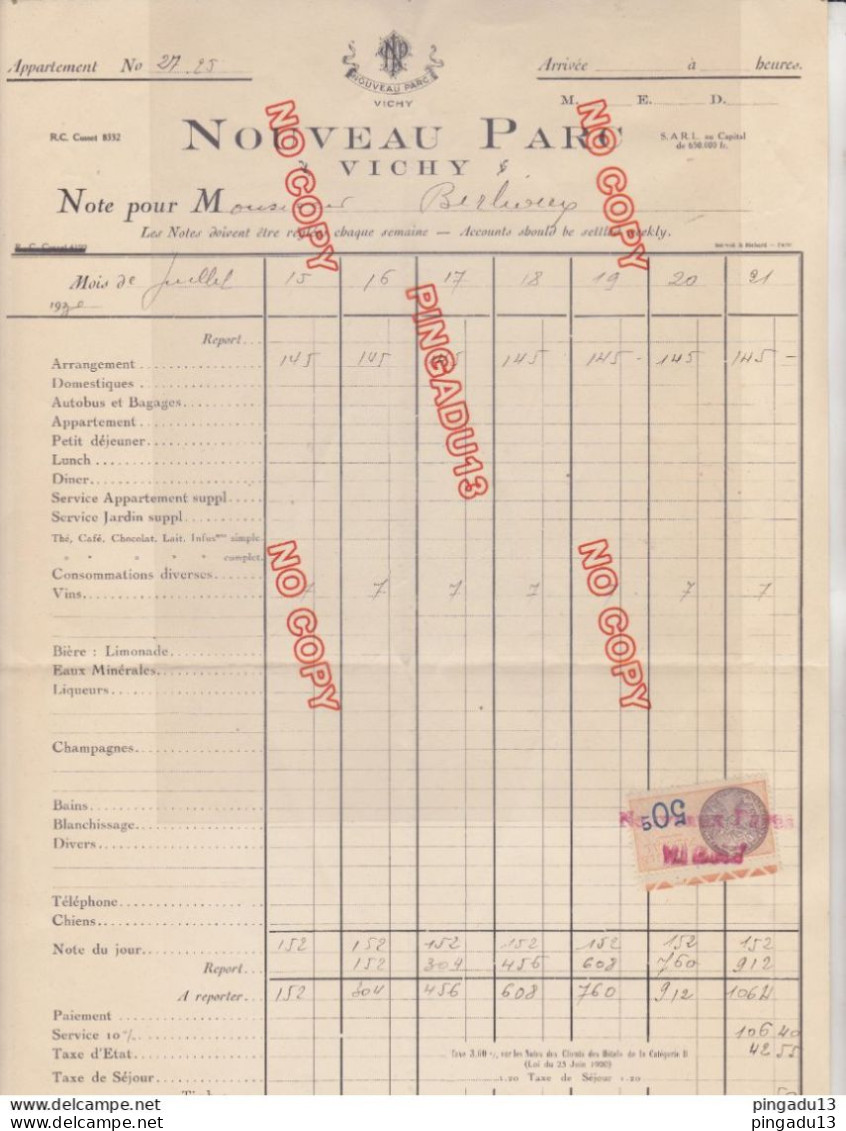 NOUVEAU PARC
VICHY
Appartement No 27.25
Arrivée à heures.
M. E. D.
R.C. Cusset 8332
NOUVEAU PARC
S.A.R.L. au Capital
de 650.000 fr.
VICHY
Note pour Monsieur
Les Notes doivent être réglées chaque semaine — Accounts should be settled weekly.
Mois de Juillet 15 16 17 18 19 20 21
193
Report
Arrangement 145 145 145 145 145 - 145 145 -
Domestiques
Autobus et Bagages
Appartement
Petit déjeuner
Lunch
Diner
Service Appartement suppl
Service Jardin suppl
Thé, Café, Chocolat, Lait, Infusons simple
" " " " " complet
Consommations diverses
Vins 7 7 7 7 7 7
Bière : Limonade
Eaux Minérales
Liqueurs
Champagnes
Bains
Blanchissage
Divers
50c
Téléphone
Chiens
Note du jour 152 152 152 152 152 152 152
Report 152 304 456 608 760 912
A reporter 152 304 456 608 760 912 1064
Paiement
Service 10% 106 40
Taxe d'Etat 42 55
Taxe 3,60 %, sur les Notes des Clients des Hôtels de la Catégorie B
(Loi du 25 Juin 1920)
Taxe de Séjour 1.20 Taxe de Séjour 1.20
NO COPY
NO COPY
PINGADU13
NO COPY
NO COPY
pingadu13 pingadu13
My Own COPY pingadu13
My Own COPY pingadu13